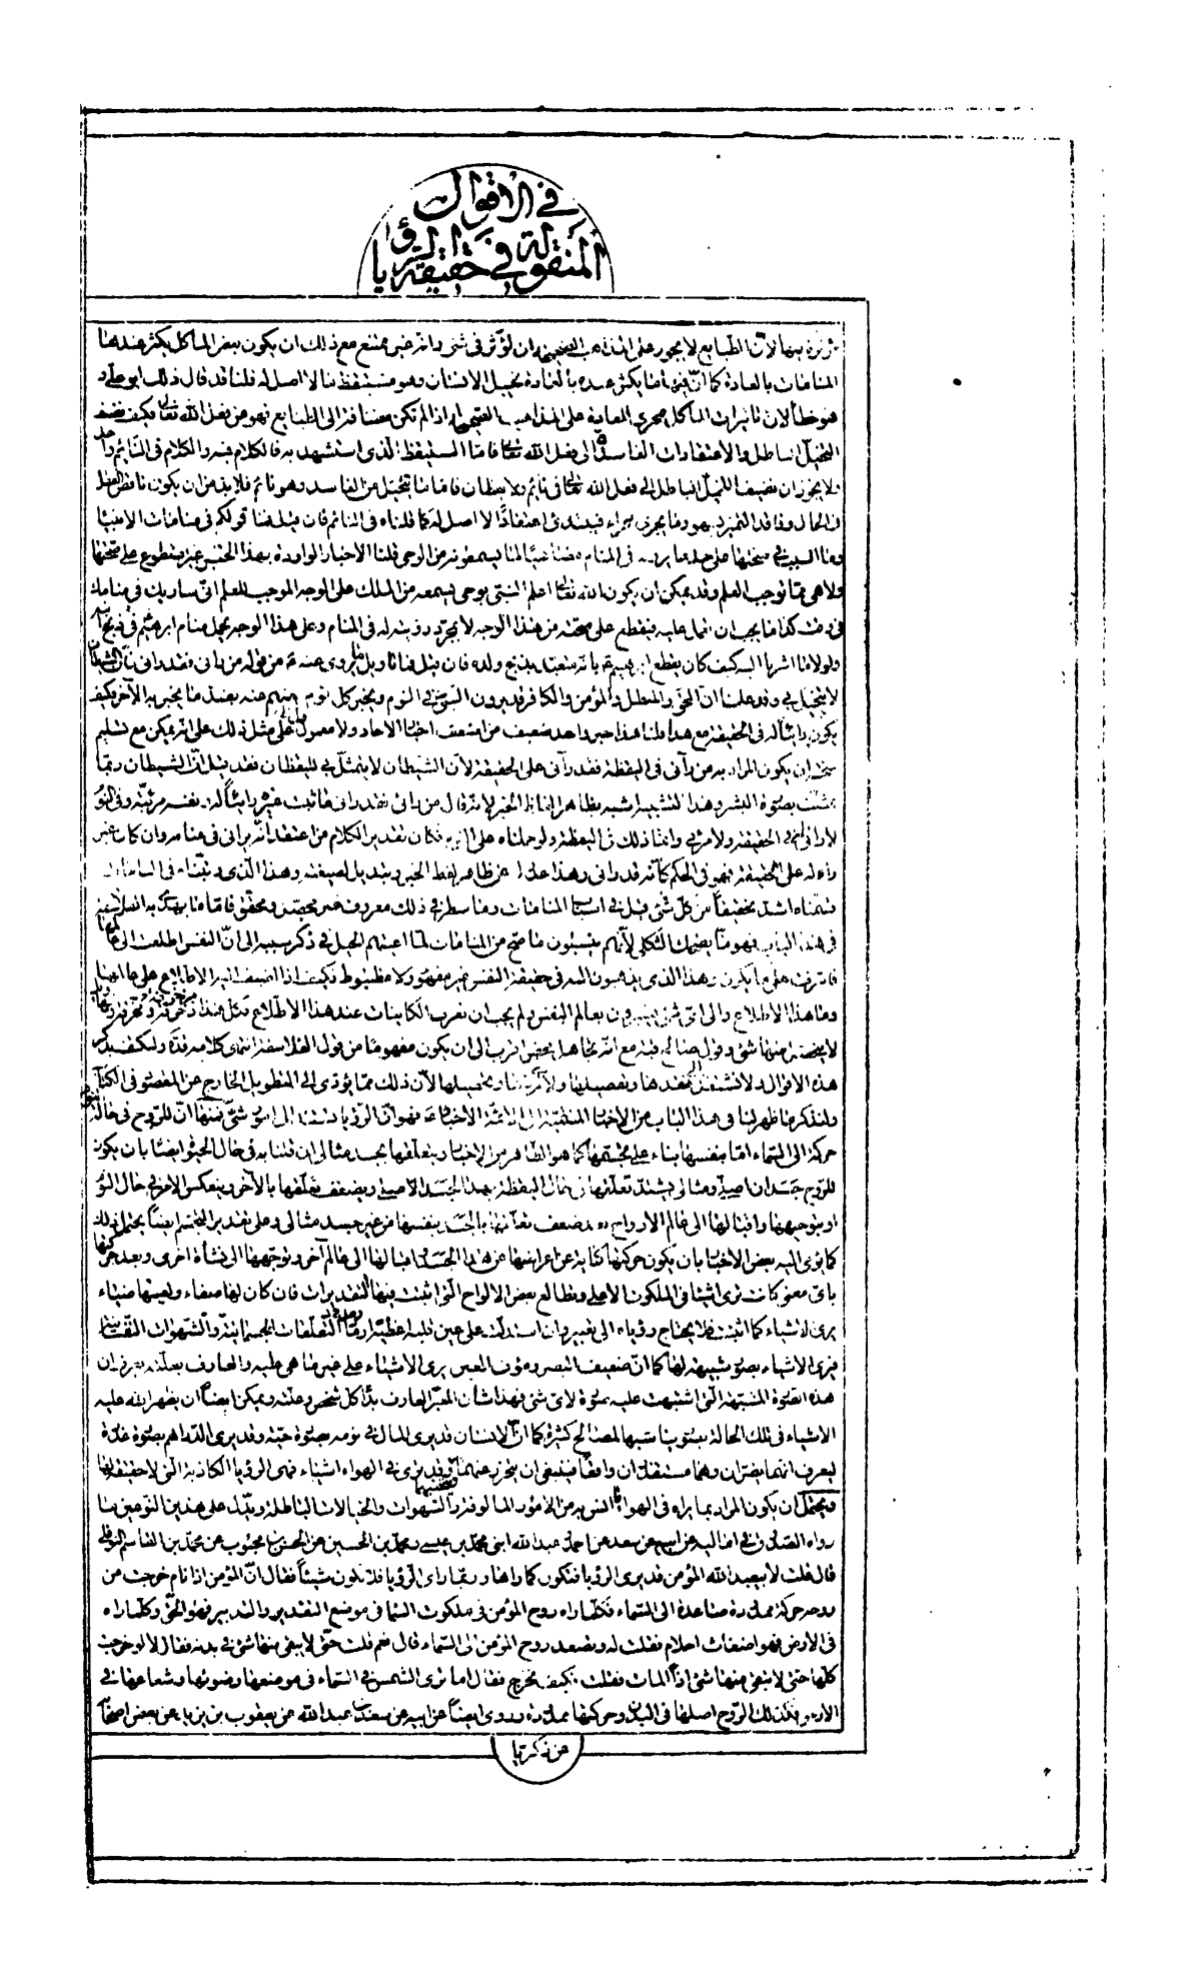 في الأقوال
المنقولة في حقيقة الرؤيا
لأن الطبايع لا يجوز على المذهب الصحيح ان تؤثر في شيء وانه غير ممتنع مع ذلك ان يكون بعض المآكل يكثر عندها
المنامات بالعادة كما ان فيها ما يكثر عنده بالعادة تخييل الانسان وهو مستيقظ ما لا اصل له قلنا قد قال ذلك ابو علي و
هو خطأ لأن تأثيرات المآكل بمجرى العادة على المذاهب الصحيحة اذا لم تكن مضافة الى الطبايع فهو من فعل الله تعالى فكيف نضيف
التخيل الباطل والاعتقادات الفاسدة الى فعل الله تعالى فاما المستيقظ الذي استشهد به فالكلام فيه والكلام في النائم واحد
ولا يجوز ان نضيف التخيل الباطل الى فعل الله تعالى في نائم ولا يقظان فاما ما يتخيل من الفاسد وهو نائم فلا بد من ان يكون ناقص العقل
في الحال وفاقد التمييز بسهو وما يجري مجراه فيبتدئ اعتقادا لا اصل له كما قلناه في النائم فان قيل فما قولكم في منامات الانبياء
وما السبب في صحتها حتى عد ما يرونه في المنام مضاهيا لما يسمعونه من الوحي قلنا الاخبار الواردة بهذا الجنس غير مقطوع على صحتها
ولا هي مما توجب العلم وقد يمكن ان يكون الله تعالى اعلم النبي بوحي يسمعه من الملك على الوجه الموجب للعلم اني ساريك في منامك
في وقت كذا ما يجب ان تعمل عليه فيقطع على صحته من هذا الوجه لا بمجرد رؤيته له في المنام وعلى هذا الوجه يحمل منام ابراهيم في ذبح ابنه
ولولا ما اشرنا اليه كيف كان يقطع ابراهيم بانه متعبد بذبح ولده فان قيل فما تأويل ما روي عنه من قوله من رآني فقد رآني فان الشيطان
لا يتخيل بي وقد علمنا ان المحق والمبطل والمؤمن والكافر قد يرون النبي في النوم ويخبر كل يوم منهم عنه بضد ما يخبر به الآخر فكيف
يكون رائيا له في الحقيقة مع هذا قلنا هذا خبر واحد ضعيف من اضعف اخبار الآحاد ولا معول على مثل ذلك على انه يمكن مع تسليم
صحته ان يكون المراد به من رآني في اليقظة فقد رآني على الحقيقة لأن الشيطان لا يتمثل بي لليقظان فقد قيل ان الشيطان ربما
تمثلت بصورة البشر وهذا التشبيه اشبه بظاهر الفاظ الخبر لانه قال من رآني فقد رآني فاثبت غيره رائيا له ونفسه مرئية وفي النوم
لا رائي له في الحقيقة ولا مرئي وانما ذلك في اليقظة ولو حملناه على النوم لكان تقدير الكلام من اعتقد انه يراني في منامه وان كان غير
راء له على الحقيقة فهو في الحكم كأنه قد رآني وهذا عدول عن ظاهر لفظ الخبر وتبديل لصيغته وهذا الذي رتبناه في المنامات
وقسمناه اشد تحقيقا من كل شيء قيل في اسباب المنامات وما سطر في ذلك معروف غير محصل ولا محقق فاما ما يهذي به الفلاسفة
في هذا الباب فهو مما يضحك الثكلى لأنهم ينسبون ما صح من المنامات لما اعيتهم الحيل في ذكر سببه الى ان النفس اطلعت الى عالمها
فاشرفت على ما يكون وهذا الذي يذهبون اليه في حقيقة النفس غير مفهوم ولا مضبوط فكيف اذا اضيف اليه الاطلاع على عالمها
وما هذا الاطلاع والى اي شيء يشيرون بعالم النفس ولم يجب ان تعرف الكاينات عند هذا الاطلاع فكل هذا زخرفة ومخرقة وتهاويل
لا يتحصل منها شيء وقول صالح فيه مع انه تجاهل محض اقرب الى ان يكون مفهوما من قول الفلاسفة انتهى كلامه قده ولنكتف بذكر
هذه الاقوال ولا نشتغل بنقدها وتفصيلها ولا بردها وتحصيلها لأن ذلك مما يؤدي الى التطويل الخارج عن المقصود في الكتاب
ولنذكر ما ظهر لنا في هذا الباب من الاخبار المنتمية الى الائمة الاخيار فهو ان الرؤيا تستند الى امور شتى فمنها ان للروح في حالة النوم
حركة الى السماء اما بنفسها بناء على تجسمها كما هو الظاهر من الاخبار او بتعلقها بجسد مثالي ان قلنا به في حال الحيوة ايضا بان يكون
للروح جسدان اصلي ومثالي يشتد تعلقها في حال اليقظة بهذا الجسد الاصلي ويضعف تعلقها بالآخر وينعكس الامر في حال النوم
او بتوجهها واقبالها الى عالم الارواح بعد ضعف تعلقها بالجسد بنفسها من غير جسد مثالي وعلى تقدير التجسم ايضا يحتمل ذلك
كما يومي اليه بعض الاخبار بان يكون حركتها كناية عن اعراضها عن هذا الجسد واقبالها الى عالم آخر وتوجهها الى نشأة اخرى وبعد حركتها
باي معنى كانت ترى اشياء في الملكوت الاعلى وتطالع بعض الالواح التي اثبتت فيها التقديرات فان كان لها صفاء ولعينها ضياء
يرى الاشياء كما اثبتت فلا يحتاج رؤياه الى تعبير وان استدلت على عين قلبه اغطية ارماد التعلقات الجسمانية والشهوات النفسانية
فيرى الاشياء بصور شبيهة لها كما ان ضعيف البصر ومؤف العين يرى الاشياء على غير ما هي عليه والعارف بعلته يعرف ان
هذه الصورة المشبهة التي اشتبهت عليه صورة لاي شيء فهذا شأن المعبر العارف بداء كل شخص وعلته ويمكن ايضا ان يظهر الله عليه
الاشياء في تلك الحالة بصور يناسبها لمصالح كثيرة كما ان الانسان قد يرى المال في نومه بصورة حية وقد يرى الدراهم بصورة عذرة
ليعرف انهما يضران وهما مستقذران واقعا فينبغي ان يتحرز عنهما ويجتنبهما وقد يرى في الهواء اشياء فهي الرؤيا الكاذبة التي لا حقيقة لها
ويحتمل ان يكون المراد بما يراه في الهواء ما انس به من الامور المألوفة والشهوات والخيالات الباطلة ويدل على هذين النوعين ما
رواه الصدوق في اماليه عن ابيه عن سعد عن احمد بن عبد الله ابني محمد بن عيسى ومحمد بن الحسين عن الحسن بن محبوب عن محمد بن القاسم النوفلي
قال قلت لابي عبد الله المؤمن قد يرى الرؤيا فتكون كما رآها وربما رأى الرؤيا فلا تكون شيئا فقال ان المؤمن اذا نام خرجت من
روحه حركة ممدودة صاعدة الى السماء فكلما رآه روح المؤمن في ملكوت السماء في موضع التقدير والتدبير فهو الحق وكلما رآه
في الارض فهو اضغاث احلام فقلت له وتصعد روح المؤمن الى السماء قال نعم قلت حتى لا يبقى منها شيء في بدنه فقال لا لو خرجت
كلها حتى لا تبقى منها شيء اذا لمات فقلت فكيف تخرج فقال اما ترى الشمس في السماء في موضعها وضوئها وشعاعها في
الارض فكذلك الروح اصلها في البدن وحركتها ممدودة وروى ايضا عن ابيه عن سعد بن عبد الله عن يعقوب بن يزيد عن بعض اصحابه
عن زكريا